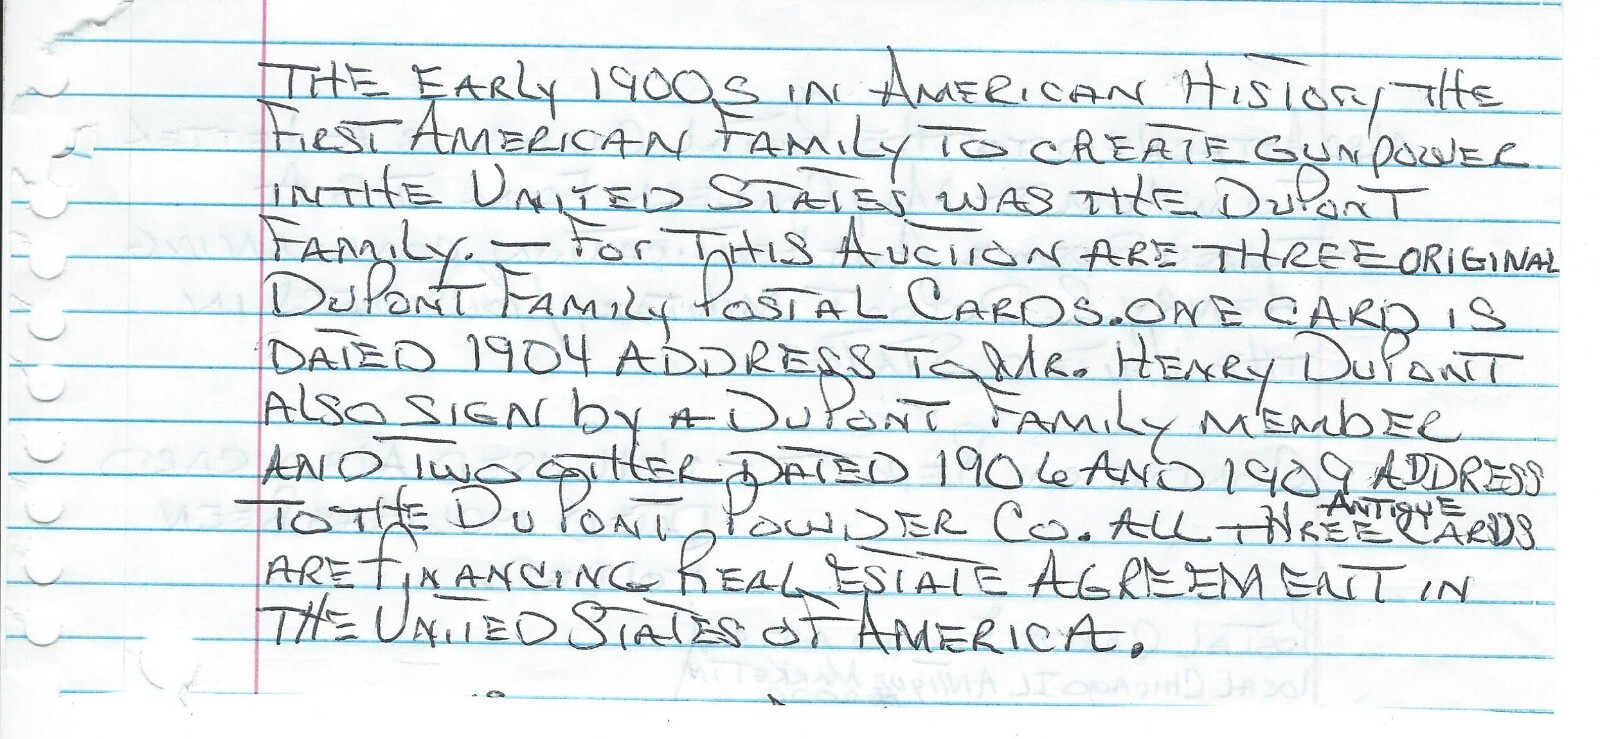 THE EARLY 1900S IN AMERICAN HISTORY THE
FIRST AMERICAN FAMILY TO CREATE GUNPOWER
IN THE UNITED STATES WAS THE DUPONT
FAMILY. — FOR THIS AUCTION ARE THREE ORIGINAL
DUPONT FAMILY POSTAL CARDS. ONE CARD IS
DATED 1904 ADDRESS TO MR. HENRY DUPONT
ALSO SIGN by A DUPONT FAMILY MEMBER
AND TWO OTHER DATED 1906 AND 1909 ADDRESS
TO THE DUPONT POWDER CO. ALL THREE ANTIQUE CARDS
ARE FINANCING REAL ESTATE AGREEMENT IN
THE UNITED STATES OF AMERICA.